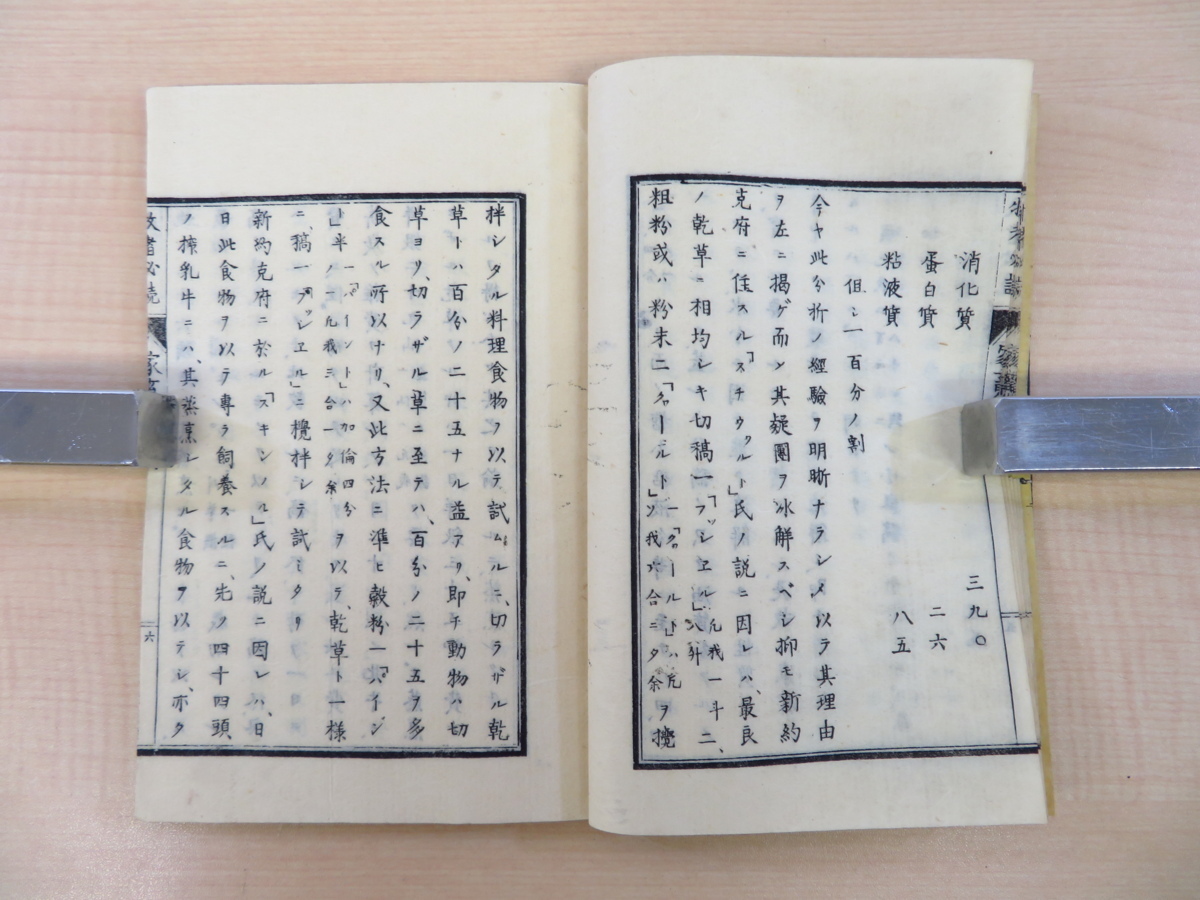 消化質 三九〇
蛋白質 二六
粘液質 八五
但シ一百分ノ割
今ヤ此分析ノ經驗ヲ明晰ナラシメ以テ其理由
ヲ左ニ揭ゲ而〆其疑團ヲ氷解スベシ抑モ新約
克府ニ住スル「スチワルト」氏ノ説ニ因レハ、最良
ノ乾草ニ相均シキ切稿一「ブッシエル」凡我一斗二、八升
粗粉或ハ粉末二「クァールト」一「クァールト」ハ凡ソ我六合二夕余ヲ攪
拌シタル料理食物ヲ以テ試ムルニ、切ラザル乾
草トハ百分ノ二十五ナル益アリ、即チ動物ハ切
草ヨリ、切ラザル草ニ至テハ、百分ノ二十五ヲ多
食スル所以ナリ、又此方法ニ準ヒ穀粉一「パイン
ト」半一「パイント」ハ加倫四分ノ一凡我三合一夕余ヲ以テ、乾草ト一様
ニ、稿一「ブッシエル」ニ攪拌シテ試ミタリ
新約克府ニ於ル「スキンノル」氏ノ説ニ因レハ、日
日此食物ヲ以テ專ラ飼養スルニ、先ノ四十四頭、
ノ搾乳牛ニハ、其蒸烹シタル食物ヲ以テシ、亦タ
牧畜必読
六